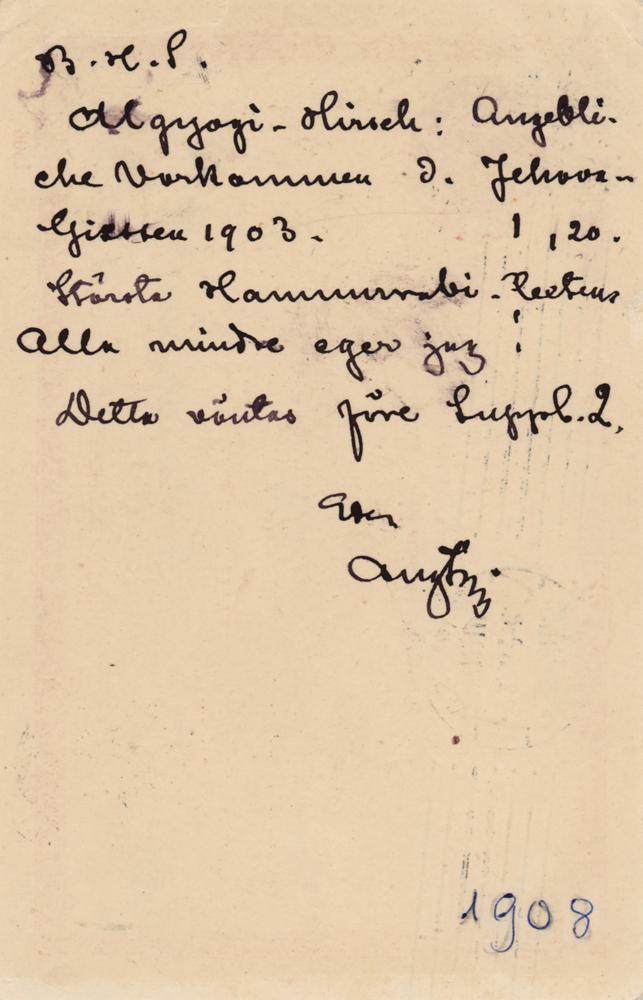 B. H. S.
Algyogi-Hirsch: Angebli-
che Vorkommen d. Jehova-
Giessen 1903. 1,20.
Största Hammurabi-
Alla mindre eger jag!
Detta väntas före Suppl. 2,
Eder
1908